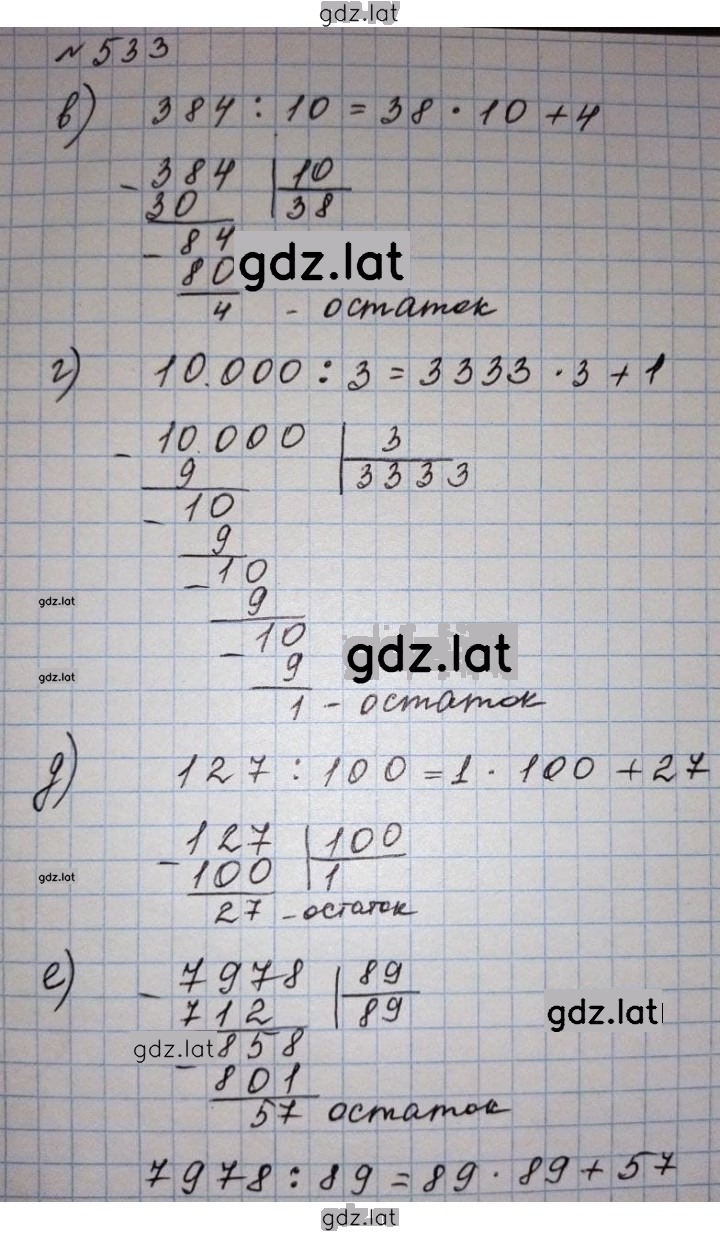 gdz.lat
№ 533
в) 384 : 10 = 38 · 10 + 4
- 384 | 10
30 38
- 84
gdz.lat
80
4 - остаток
г) 10.000 : 3 = 3333 · 3 + 1
- 10.000 | 3
9 3333
- 10
9
- 10
gdz.lat
9
- 10
gdz.lat
9
gdz.lat
1 - остаток
д) 127 : 100 = 1 · 100 + 27
- 127 | 100
gdz.lat
100 1
27 - остаток
е) - 7978 | 89
712 89
gdz.lat
gdz.lat
- 858
801
57 остаток
7978 : 89 = 89 · 89 + 57
gdz.lat